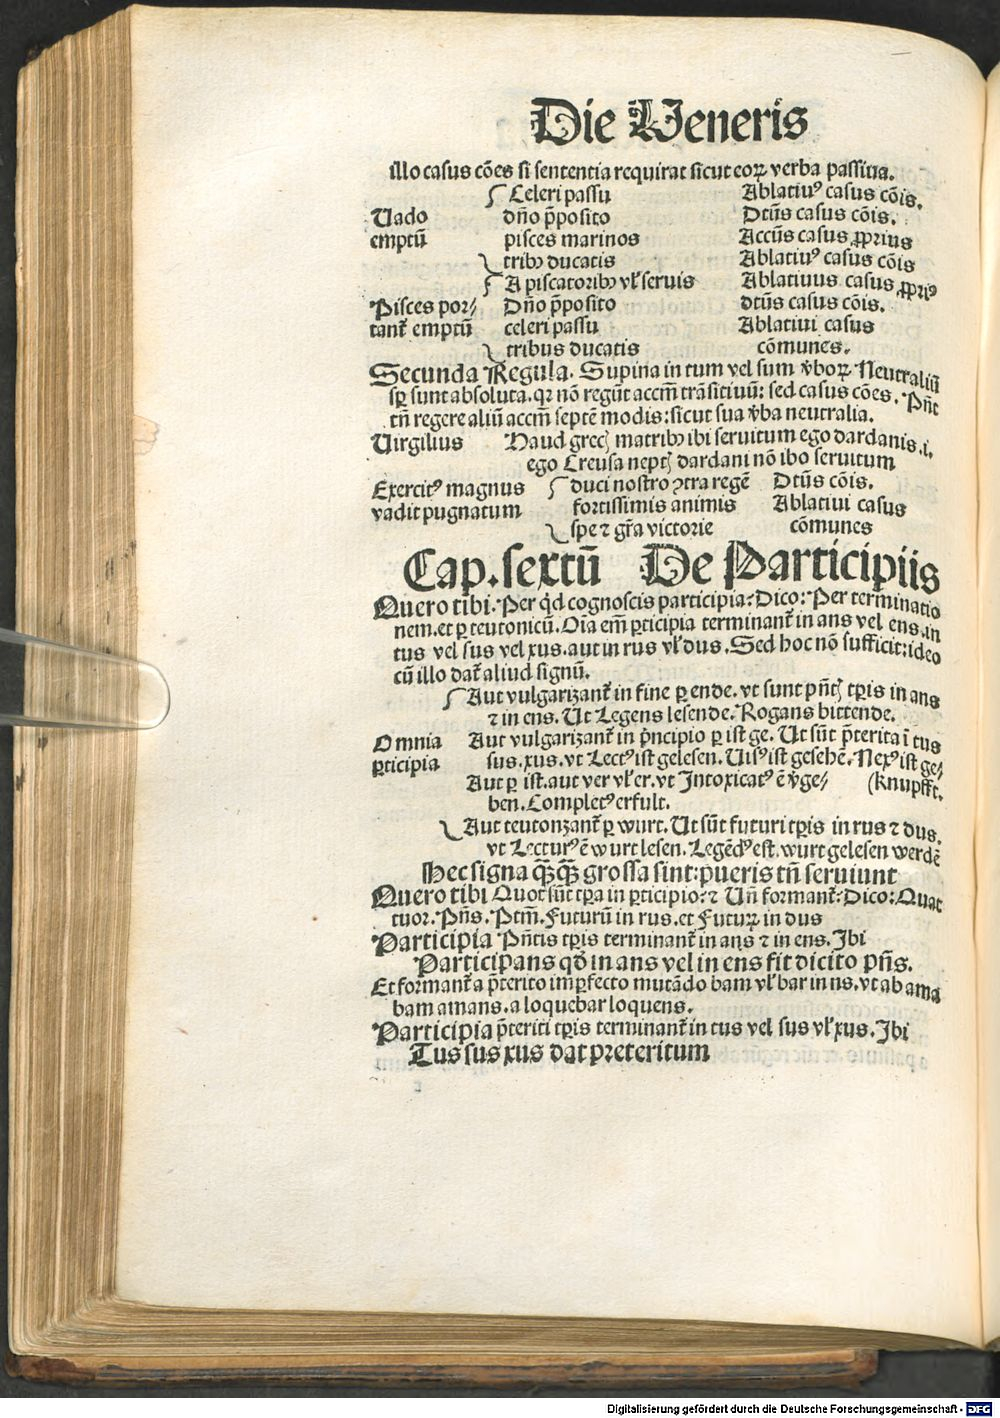 Die Veneris
illo casus cōes si sententia requirat sicut eoꝝ verba passiua.
Celeri passu Ablatiuꝰ casus cōis.
Uado dn̄o p̄posito Dtūs casus cōis.
emptū pisces marinos Accūs casus ꝓprius
tribꝫ ducatis Ablatiuꝰ casus cōis
A piscatoribꝫ vl̓ seruis Ablatiuus casus ꝓpriꝰ
Pisces por⸗ Dn̄o p̄posito dtūs casus cōis.
tant̄ emptū celeri passu Ablatiui casus
tribus ducatis cōmunes.
Secunda Regula. Supina in tum vel sum v̄boꝝ Neutraliū
sp̄ sunt absoluta. qꝛ nō regūt accm̄ trāsitiuū: sed casus cōes. Pn̄t
tn̄ regere aliū accm̄ septē modis: sicut sua v̄ba neutralia.
Virgilius Haud grecꝭ matribꝫ ibi seruitum ego dardanis .i.
ego Creusa neptꝭ dardani nō ibo seruitum
Exercitꝰ magnus duci nostro ꝯtra regē Dtūs cōis.
vadit pugnatum fortissimis animis Ablatiui casus
spe ⁊ gr̄a victorie cōmunes
Cap. sextū De Participiis
Quero tibi. Per qd̓ cognoscis participia: Dico: Per terminatio
nem. et ꝑ teutonicū. Oīa em̄ ꝑticipia terminant̄ in ans vel ens. in
tus vel sus vel xus. aut in rus vl̓ dus. Sed hoc nō sufficit: ideo
cū illo dat̄ aliud signū.
Aut vulgarizant̄ in fine ꝑ ende. vt sunt pn̄tꝭ tꝑis in ans
⁊ in ens. Ut Legens lesende. Rogans bittende.
Omnia Aut vulgarizant̄ in p̄ncipio ꝑ ist ge. Ut sūt p̄terita ī tus
ꝑticipia sus. xus. vt Lectꝰ ist gelesen. Uisꝰ ist gesehē. Nexꝰ ist ge⸗
Aut ꝑ ist. aut ver vl̓ er. vt Intoxicatꝰ ē v̓ge⸗ (knupfft.
ben. Completꝰ erfult.
Aut teutonzant̄ ꝑ wurt. Ut sūt futuri tꝑis in rus ⁊ dus.
vt Lecturꝰ ē wurt lesen. Legēdꝰ est. wurt gelesen werdē
Hec signa qͣꝫqͣꝫ grossa sint: pueris tn̄ seruiunt
Quero tibi Quot sūt tꝑa in ꝑticipio: ⁊ Un̄ formant̄: Dico: Quat
tuor. Pn̄s. Ptm̄. Futurū in rus. et Futuꝝ in dus
Participia Pn̄tis tꝑis terminant̄ in ans ⁊ in ens. Ibi
Participans qd̓ in ans vel in ens fit dicito pn̄s.
Et formant̄ a p̄terito imꝑfecto mutādo bam vl̓ bar in ns. vt ab ama
bam amans. a loquebar loquens.
Participia p̄teriti tꝑis terminant̄ in tus vel sus vl̓ xus. Ibi
Tus sus xus dat preteritum
Digitalisierung gefördert durch die Deutsche Forschungsgemeinschaft - DFG